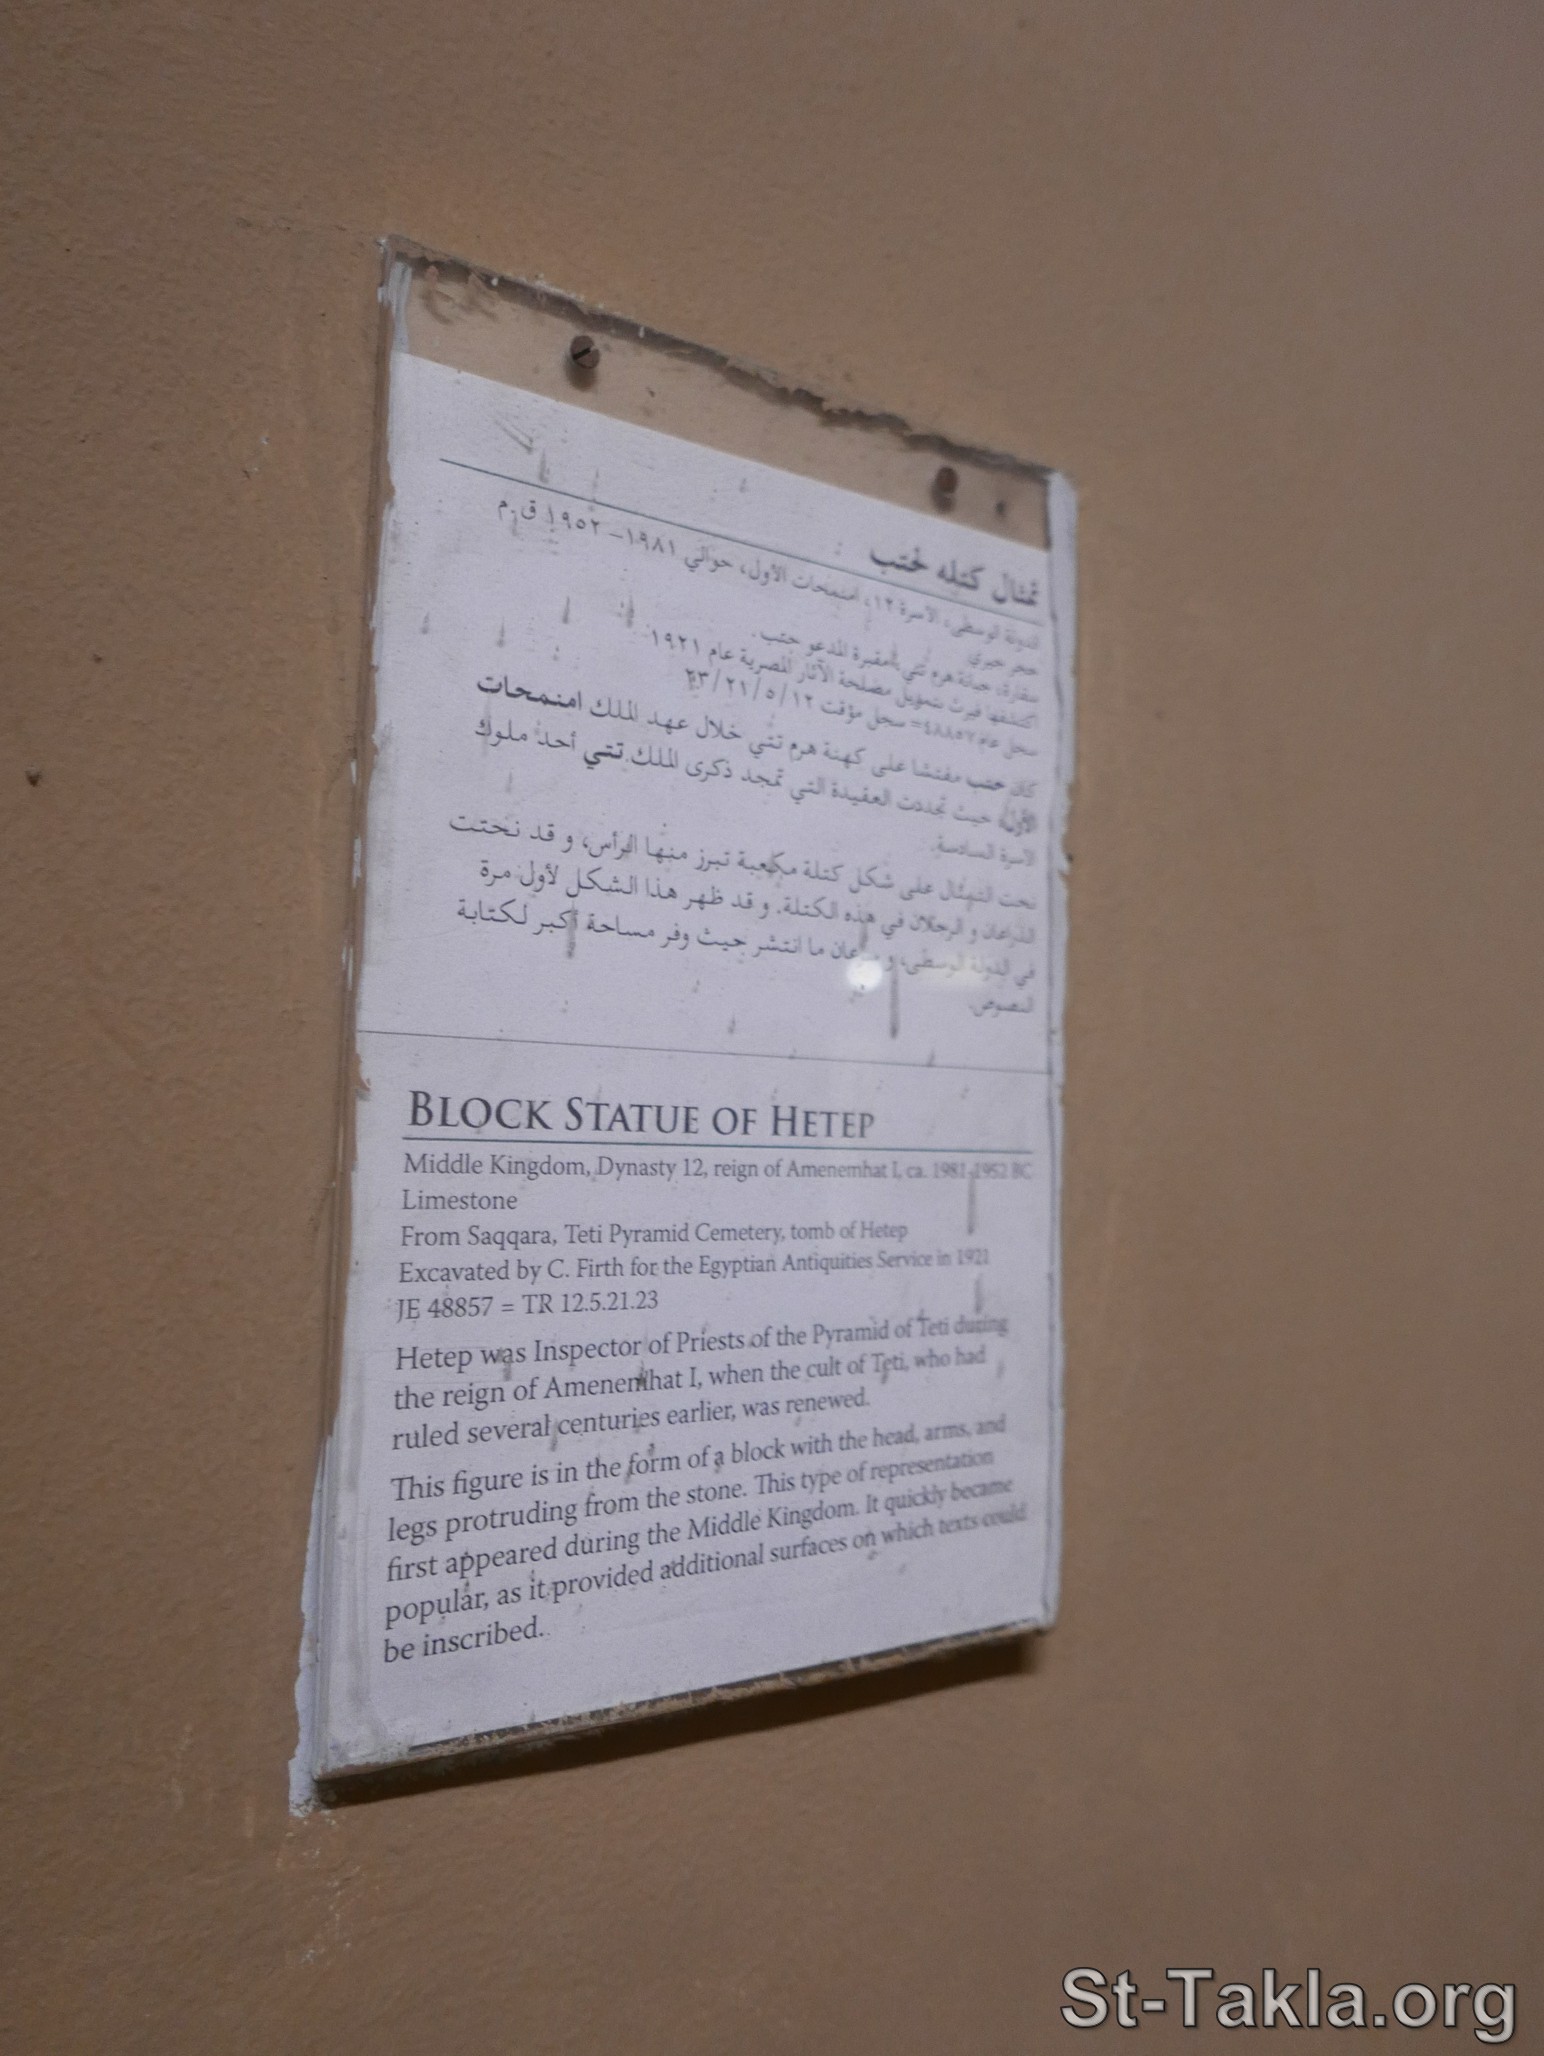 تمثال كتله لحتب
الدولة الوسطى، الأسرة ١٢، امنمحات الأول، حوالي ١٩٨١– ١٩٥٢ ق.م
حجر جيري
سقارة، جبانة هرم تتي، مقبرة المدعو حتب.
اكتشفها فيرث بتمويل مصلحة الآثار المصرية عام ١٩٢١
سجل عام ٤٨٨٥٧= سجل مؤقت ١٢/٥/٢١/٢٣
كان حتب مفتشا على كهنة هرم تتي خلال عهد الملك امنمحات
الأول، حيث تجددت العقيدة التي تمجد ذكرى الملك تتي أحد ملوك
الاسرة السادسة.
نحت التمثال على شكل كتلة مكعبة تبرز منها الرأس، و قد نحتت
الذراعان و الرجلان في هذه الكتلة. و قد ظهر هذا الشكل لأول مرة
في الدولة الوسطى، و ما انتشر حيث وفر مساحة أكبر لكتابة
النصوص.
BLOCK STATUE OF HETEP
Middle Kingdom, Dynasty 12, reign of Amenemhat I, ca. 1981-1952 BC
Limestone
From Saqqara, Teti Pyramid Cemetery, tomb of Hetep
Excavated by C. Firth for the Egyptian Antiquities Service in 1921
JE 48857 = TR 12.5.21.23
Hetep was Inspector of Priests of the Pyramid of Teti during
the reign of Amenemhat I, when the cult of Teti, who had
ruled several centuries earlier, was renewed.
This figure is in the form of a block with the head, arms, and
legs protruding from the stone. This type of representation
first appeared during the Middle Kingdom. It quickly became
popular, as it provided additional surfaces on which texts could
be inscribed.
St-Takla.org